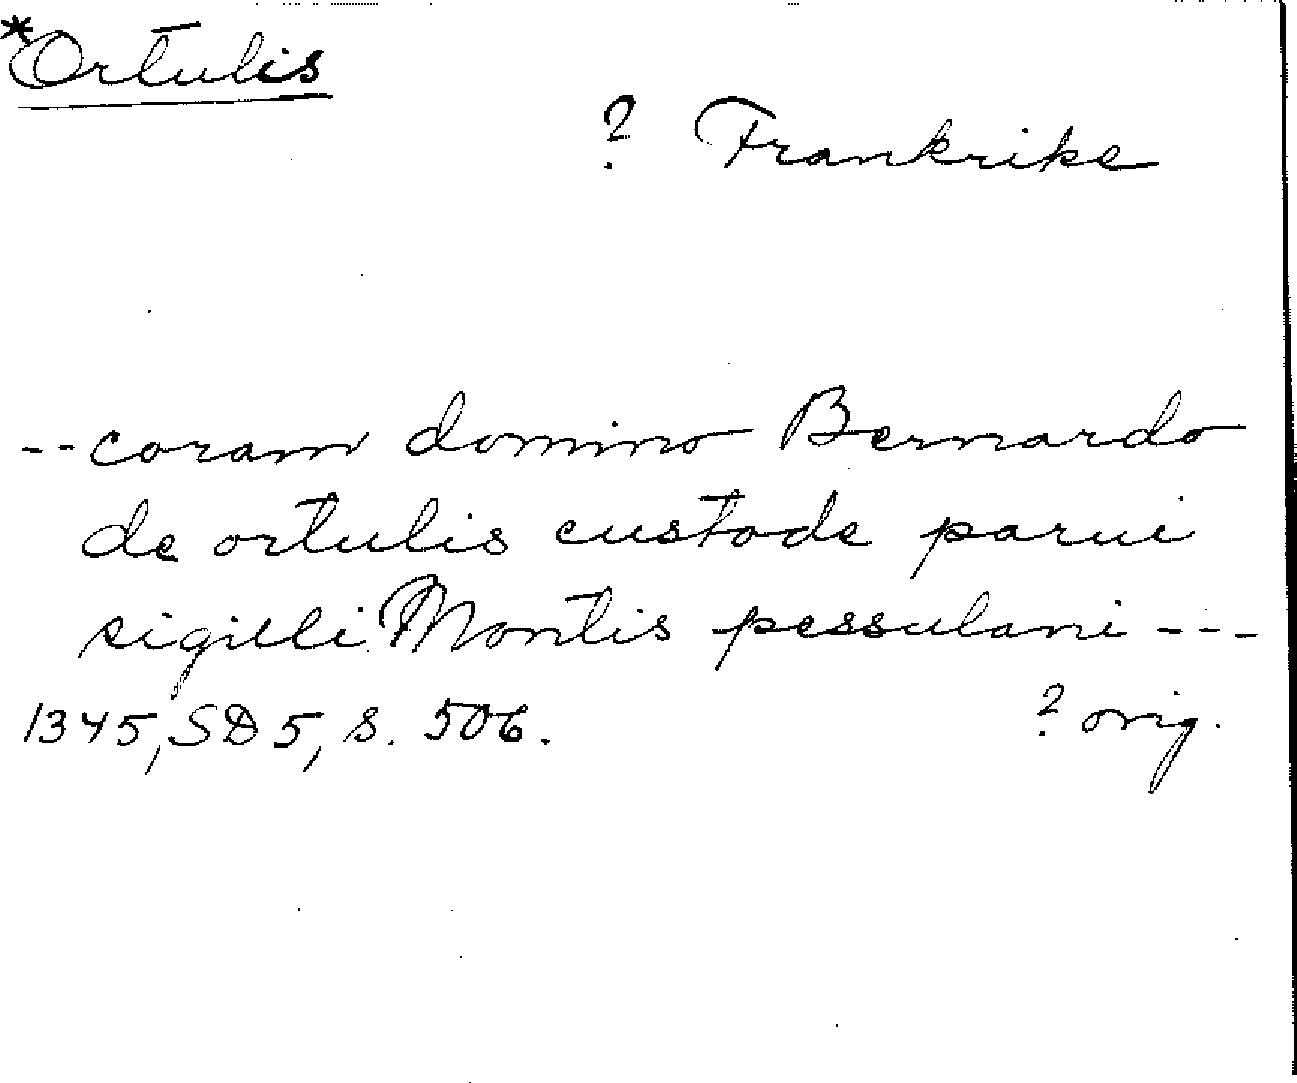 *Ortulis
? Frankrike
-- coram domino Bernardo
de ortulis custode parui
sigilli Montis pessulani ---
1345, SD 5, s. 506. ? orig.